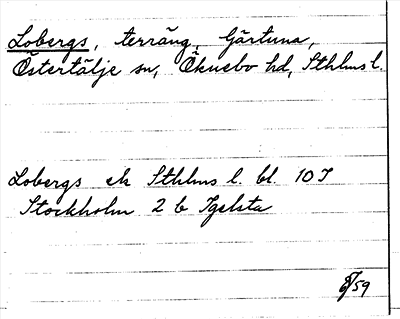 Lobergs, terräng, Gärtuna,
Östertälje sn, Öknebo hd, Sthlms l.
Lobergs ek Sthlms l. bl. 10 I
Stockholm 2 b Igelsta
/59